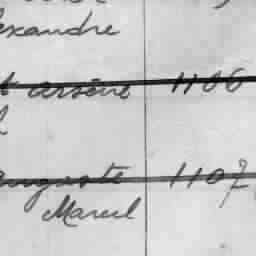 exandre
t arsène 1106
auguste 1107
Marcel